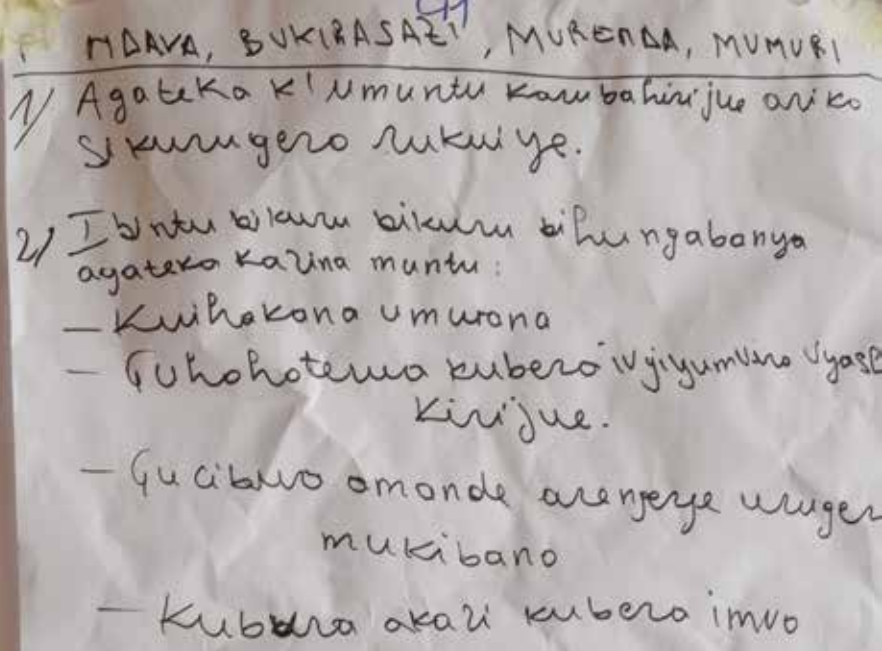 41
NDAVA, BUKIRASAZI, MURENDA, MUMURI
1/ Agateka k'umuntu karubahirijwe ariko
si kurugero rukwiye.
2/ Ibintu bikuru bikuru bihungabanya
agateka kazina muntu :
- Kwihakana umwana
- Guhohoterwa kubera ivyiyumviro vyase
kirijwe.
- Gucibwo amande arenjeje uruger
mukibano
- Kubura akazi kubera imvo